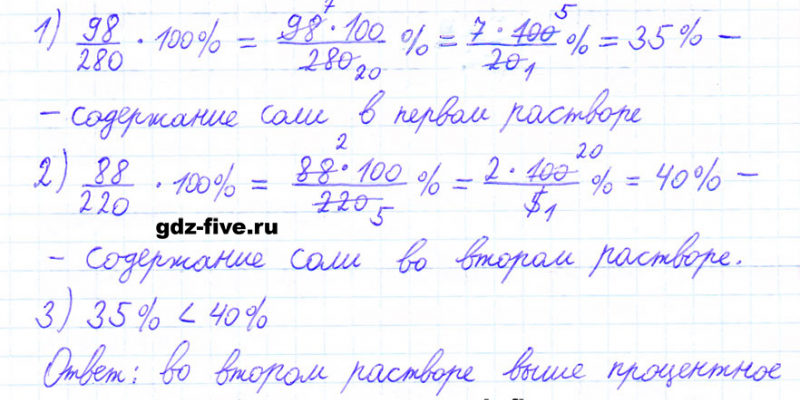 1) 98/280 · 100% = 98·100/280 % = 7·100/20 % = 35% –
7 20 5 1
– содержание соли в первом растворе
2) 88/220 · 100% = 88·100/220 % = 2·100/5 % = 40% –
2 5 20 1
gdz-five.ru
– содержание соли во втором растворе.
3) 35% < 40%
Ответ: во втором растворе выше процентное